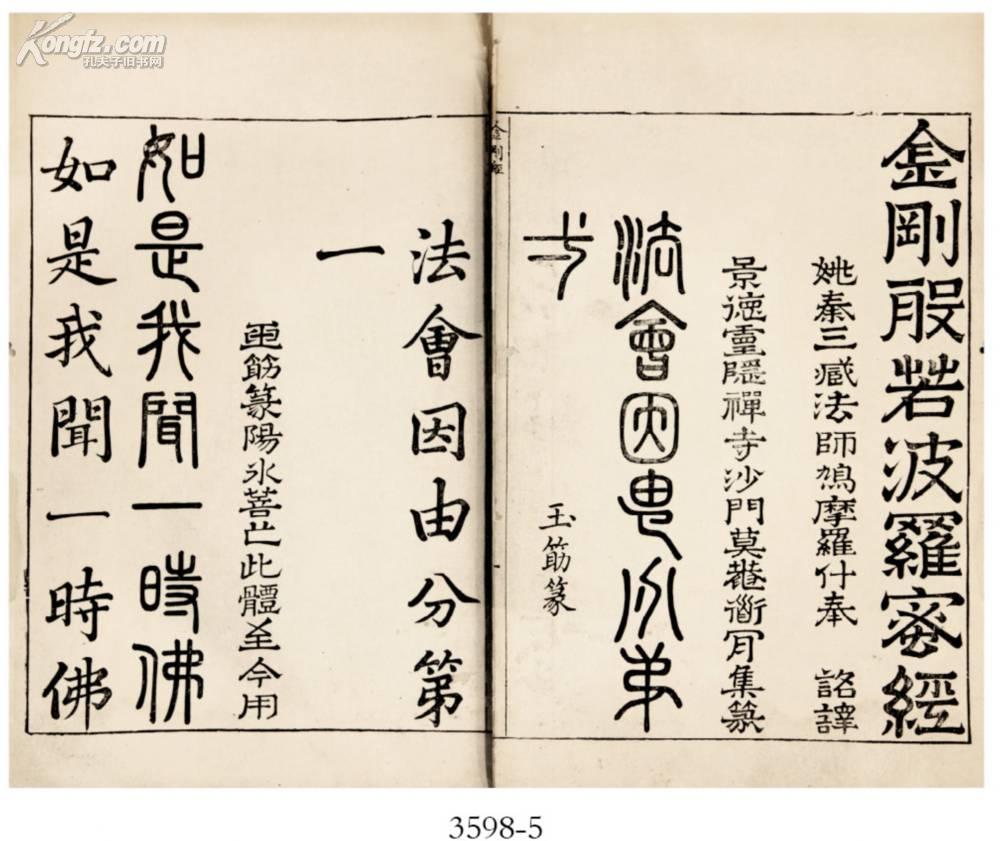 Kongfz.com
孔夫子旧书网
金剛般若波羅蜜經
姚秦三藏法師鳩摩羅什奉　詔譯
景德靈隱禪寺沙門莫菴道肎集篆
法會因由分弟
弌
玉筯篆
金剛經
法會因由分第
一
玉筯篆陽冰善此體至今用
如是我聞一時佛
如是我聞一時佛
3598-5